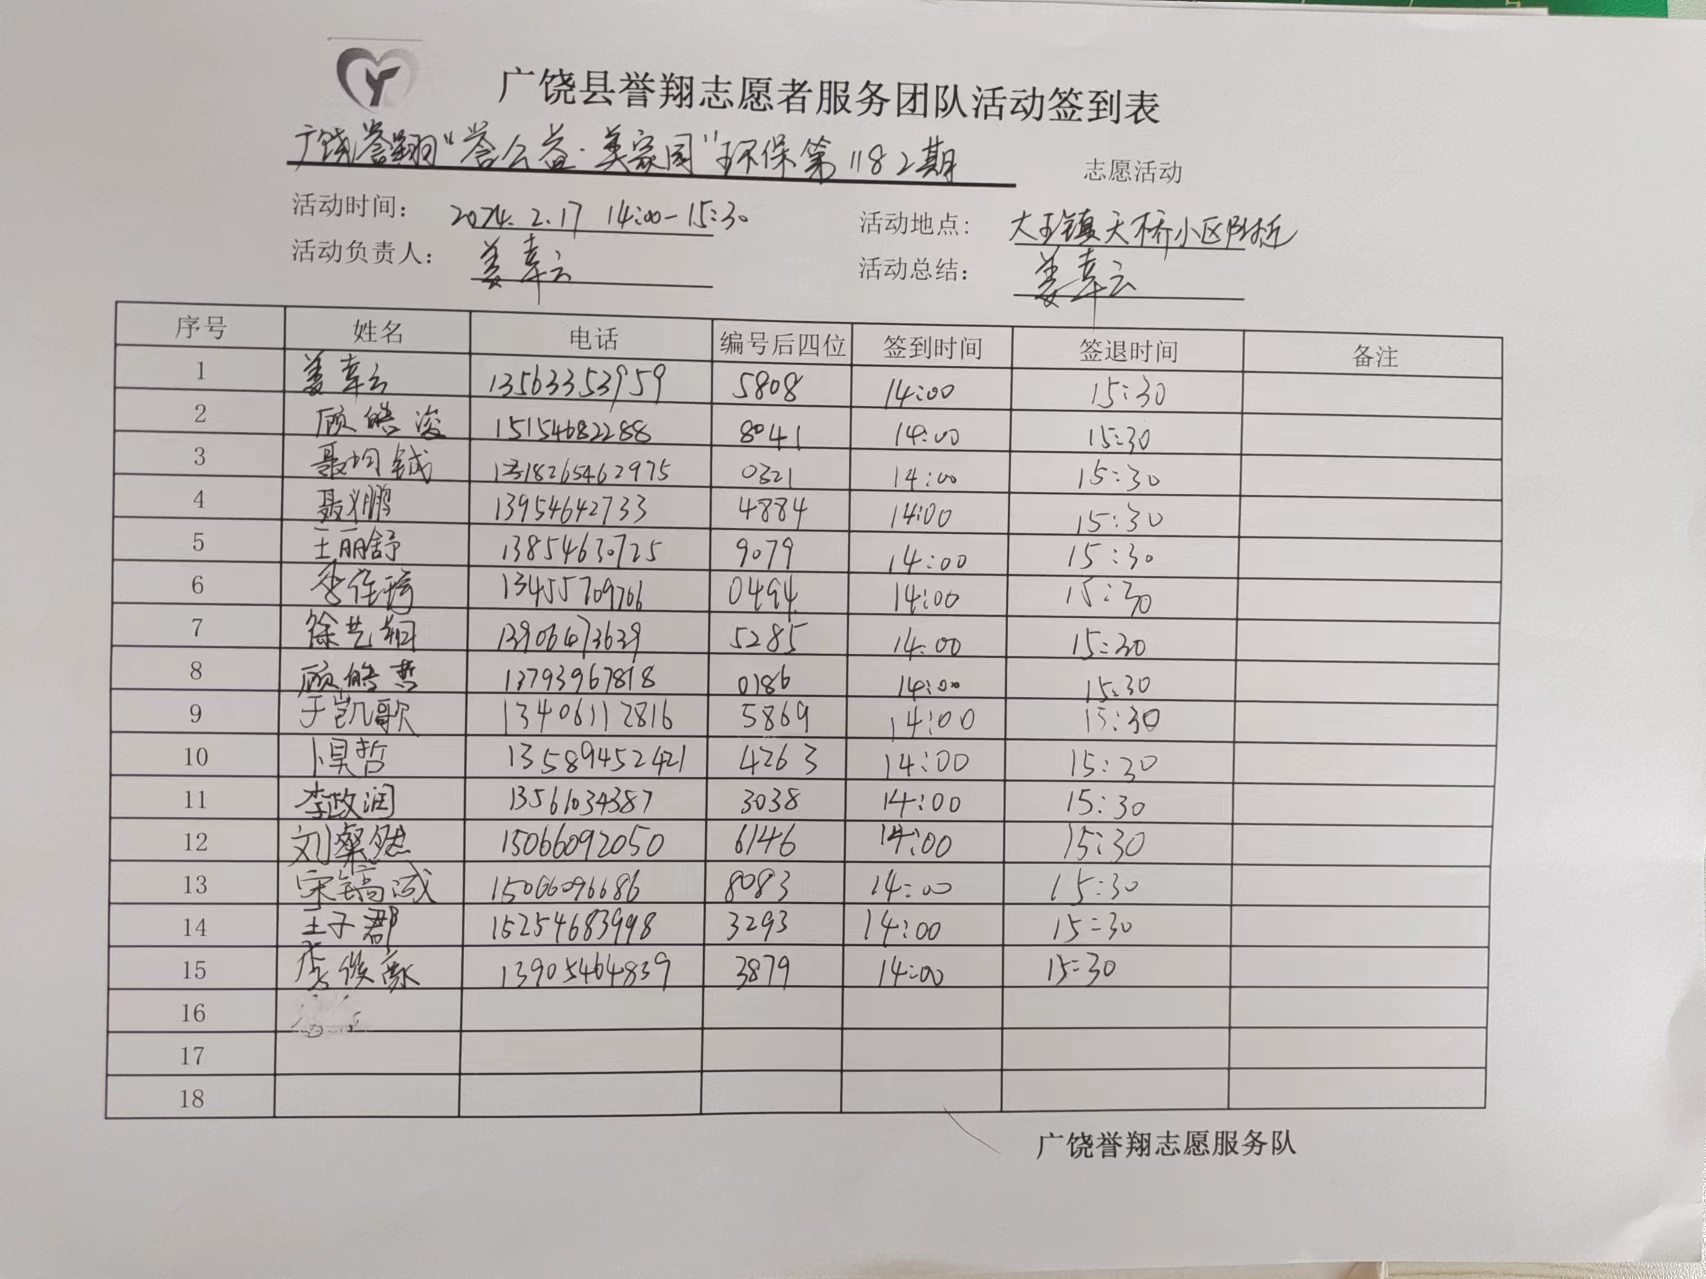 广饶县誉翔志愿者服务团队活动签到表
广饶誉翔“誉公益·美家园”环保第1182期 志愿活动
活动时间： 2024.2.17 14:00-15:30 活动地点： 大王镇天桥小区附近
活动负责人： 姜幸云 活动总结： 姜幸云
序号 姓名 电话 编号后四位 签到时间 签退时间 备注
1 姜幸云 13563353959 5808 14:00 15:30
2 顾皓浚 15154682288 8041 14:00 15:30
3 聂均钺 18265462975 0321 14:00 15:30
4 聂兆鹏 13954642733 4884 14:00 15:30
5 王丽舒 13854630725 9079 14:00 15:30
6 李佳琦 13455709766 0494 14:00 15:30
7 徐艺桐 13906473639 5285 14:00 15:30
8 顾皓哲 13793967818 0186 14:00 15:30
9 于凯歌 13406112816 5869 14:00 15:30
10 卜昊哲 13589452421 4263 14:00 15:30
11 李政润 13561034387 3038 14:00 15:30
12 刘粲然 15066092050 6146 14:00 15:30
13 宋镐诚 15066096686 8083 14:00 15:30
14 王子郡 15254683998 3293 14:00 15:30
15 李俊豪 13905464839 3879 14:00 15:30
16
17
18
广饶誉翔志愿服务队